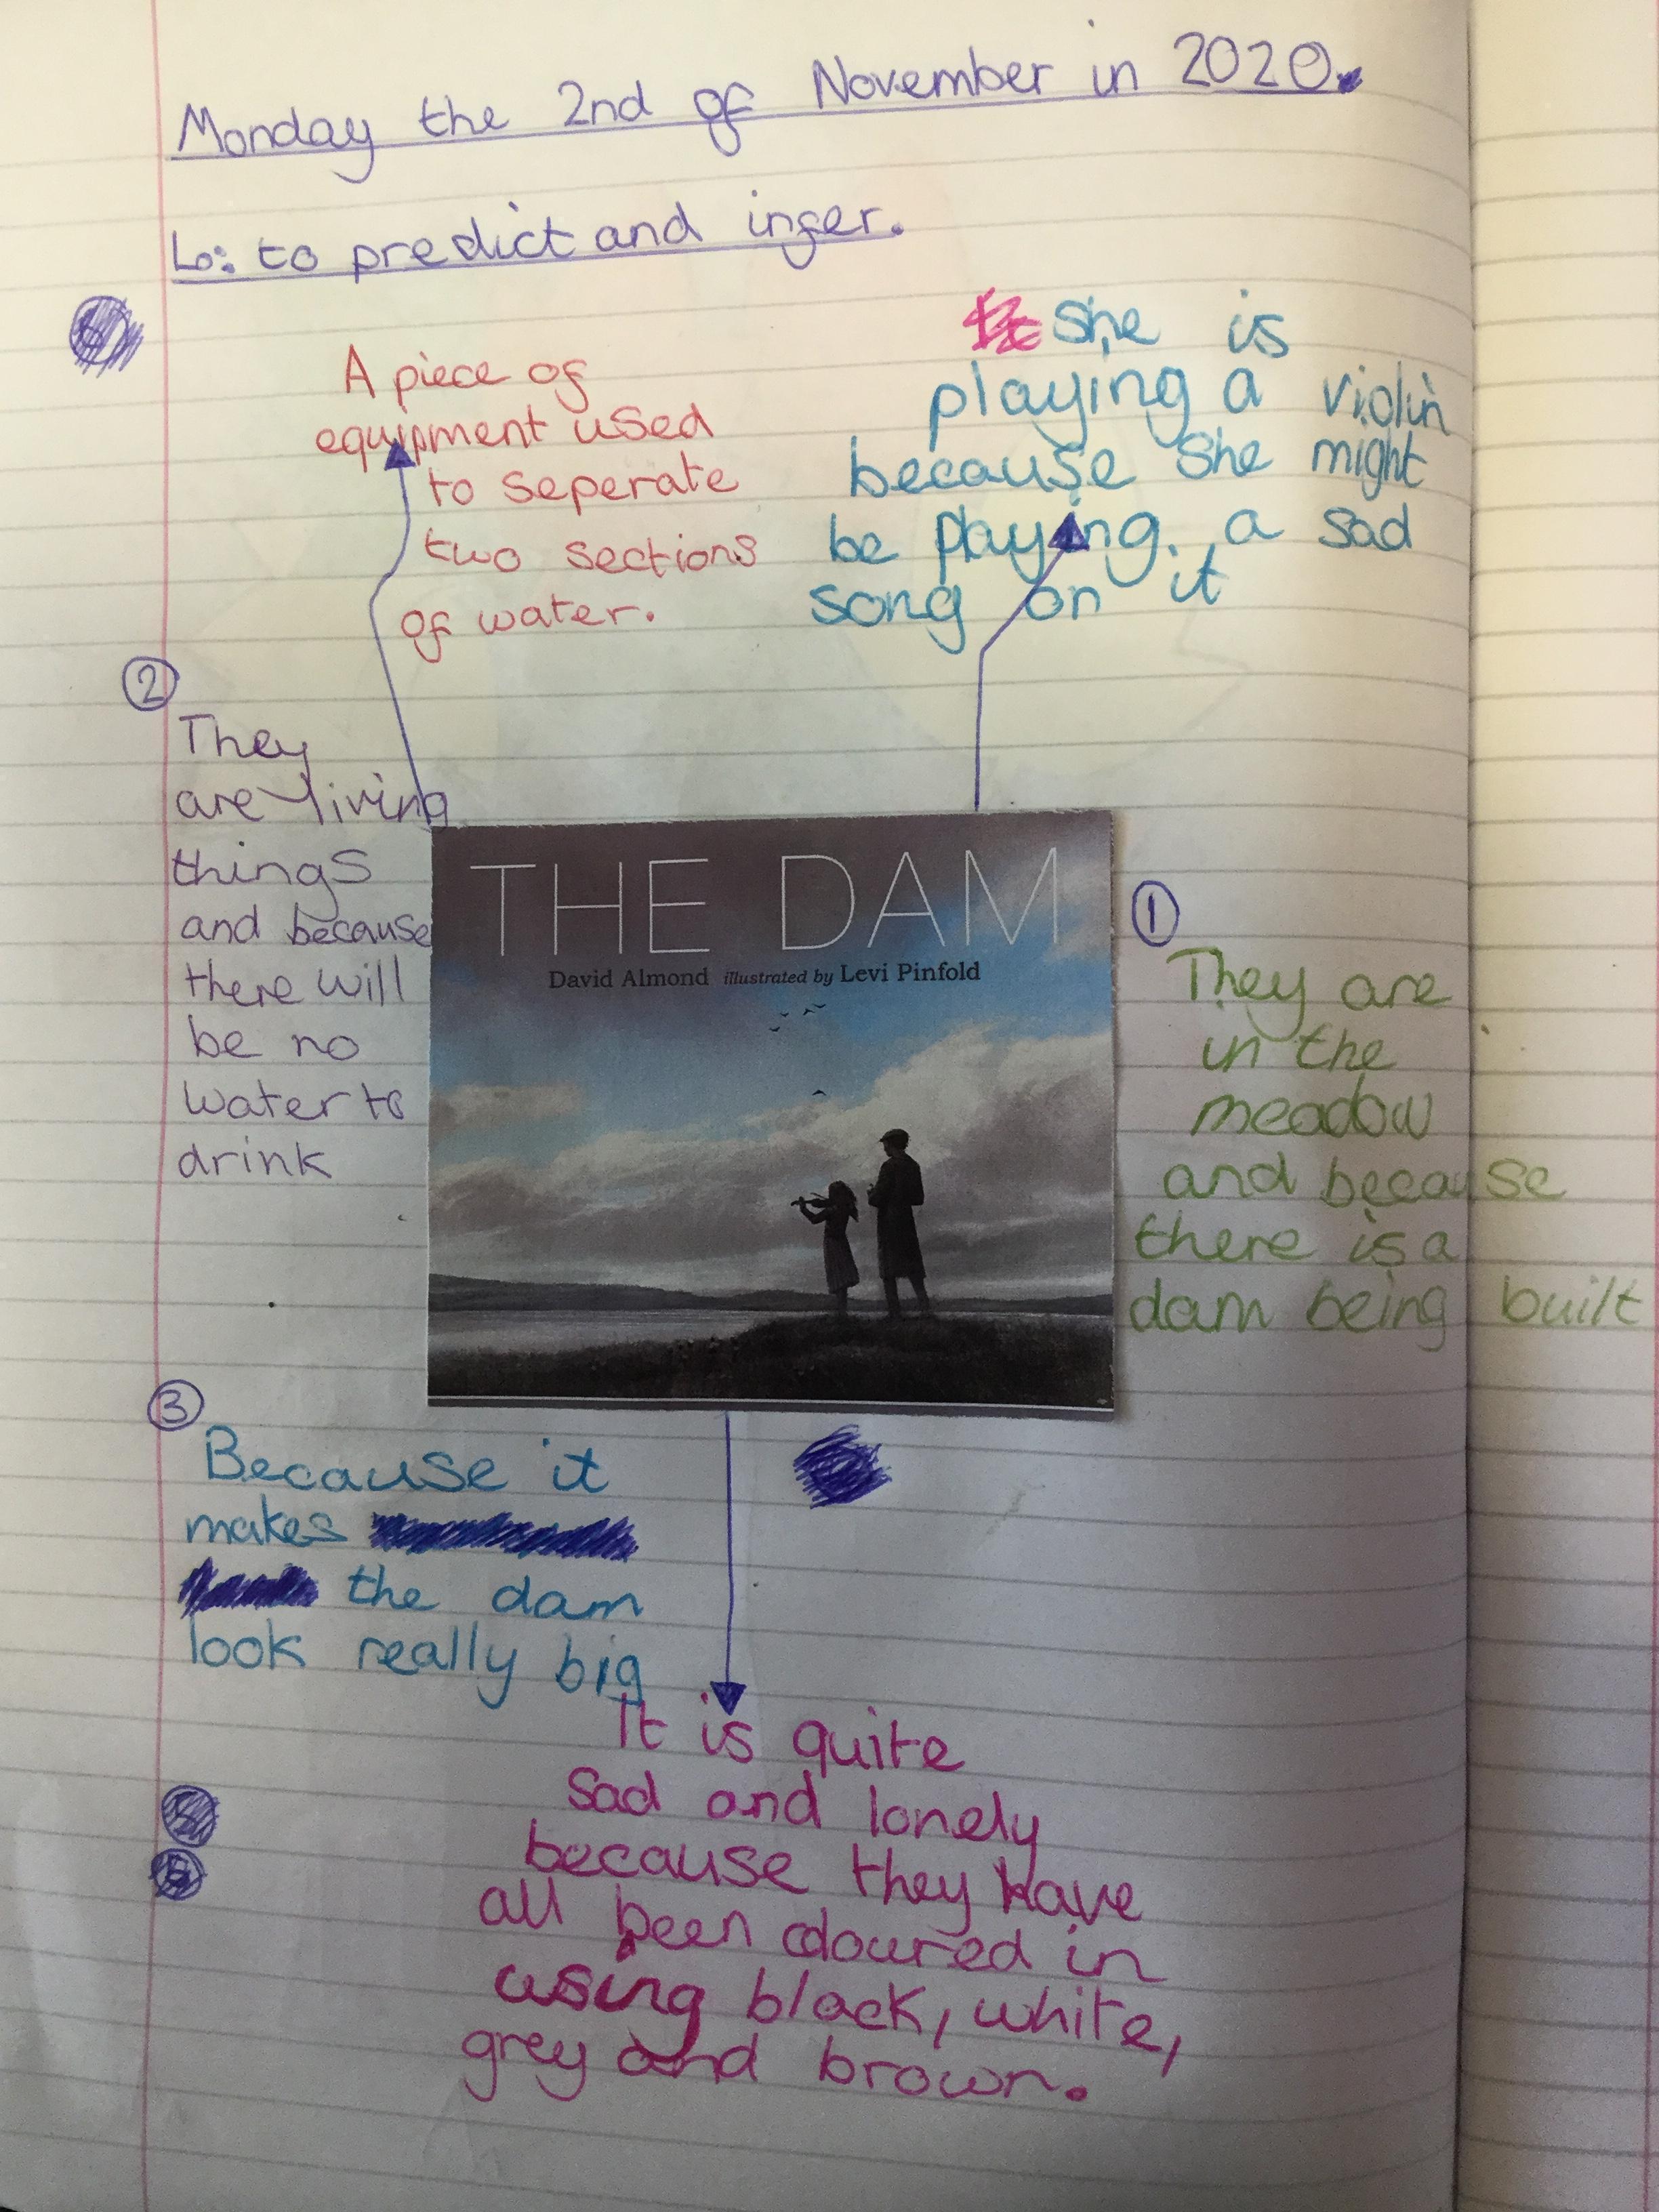 Monday the 2nd of November in 2020.
Lo: to predict and infer.
A piece of
equipment used
to seperate
two sections
of water.
She is
playing a violin
because she might
be playing. a sad
song on it
2
They
are living
things
and because
there will
be no
water to
drink
THE DAM
David Almond illustrated by Levi Pinfold
1
They are
in the
meadow
and because
there is a
dam being built
3
Because it
makes
the dam
look really big
It is quite
sad and lonely
because they have
all been coloured in
using black, white,
grey and brown.